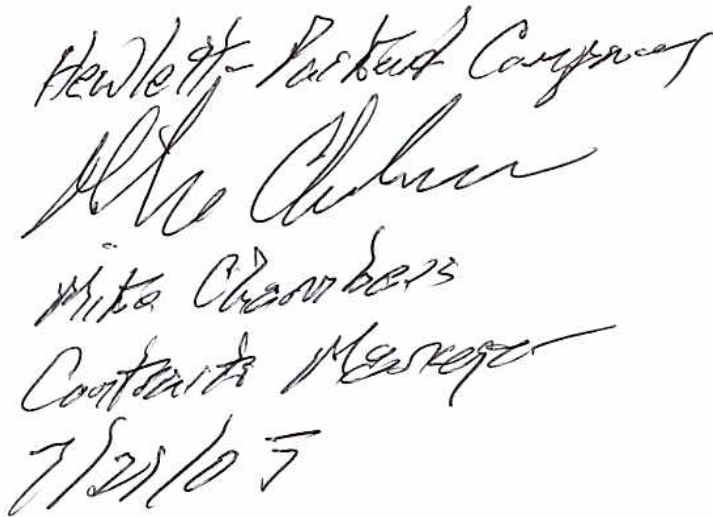 Hewlett-Packard Company
Mike Chambers
Mike Chambers
Contracts Manager
7/21/05